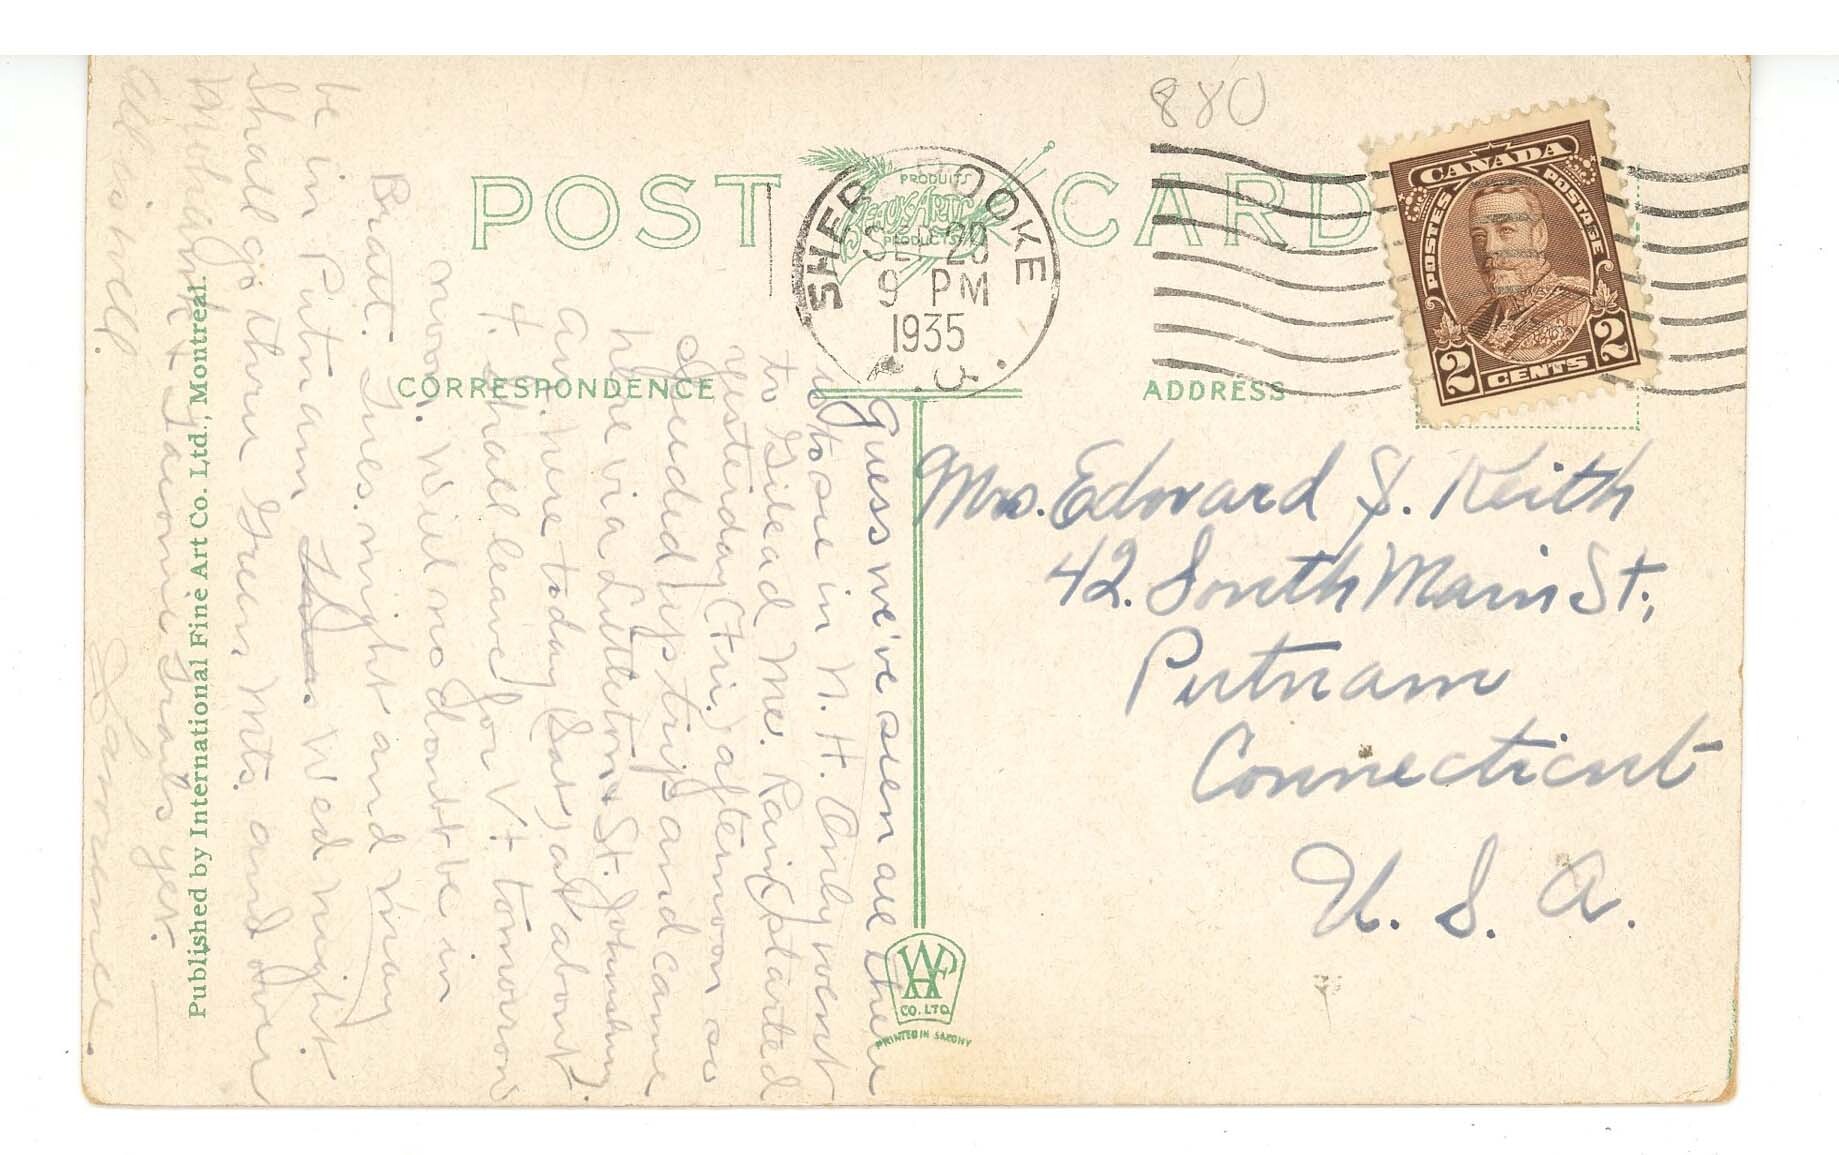 880
POST CARD
PRODUITS
BEAUX-ARTS
PRODUCTS
SHERBROOKE
SEP 28
9 PM
1935
CANADA
POSTES POSTAGE
2 CENTS 2
CORRESPONDENCE
ADDRESS
Guess we've seen all there
is to see in N. H. Only went
to Gilead Me. Rain started
yesterday (Fri.) afternoon so
decided vs trips and came
here via Littleton & St. Johnsbury.
Arr. here today (Sat) at about
4. Shall leave for Vt tomorrow
noon. Will no doubt be in
Bratt. Tues. night and may
be in Putnam Wed night.
Shall go thru Green Mts. and over
Mohawk & Taconic Trails yet.
All is well. Lawrence.
Mrs. Edward S. Keith
42. South Main St.,
Putnam
Connecticut
U. S. A.
Published by International Fine Art Co. Ltd., Montreal.
CO. LTD.
PRINTED IN SAXONY